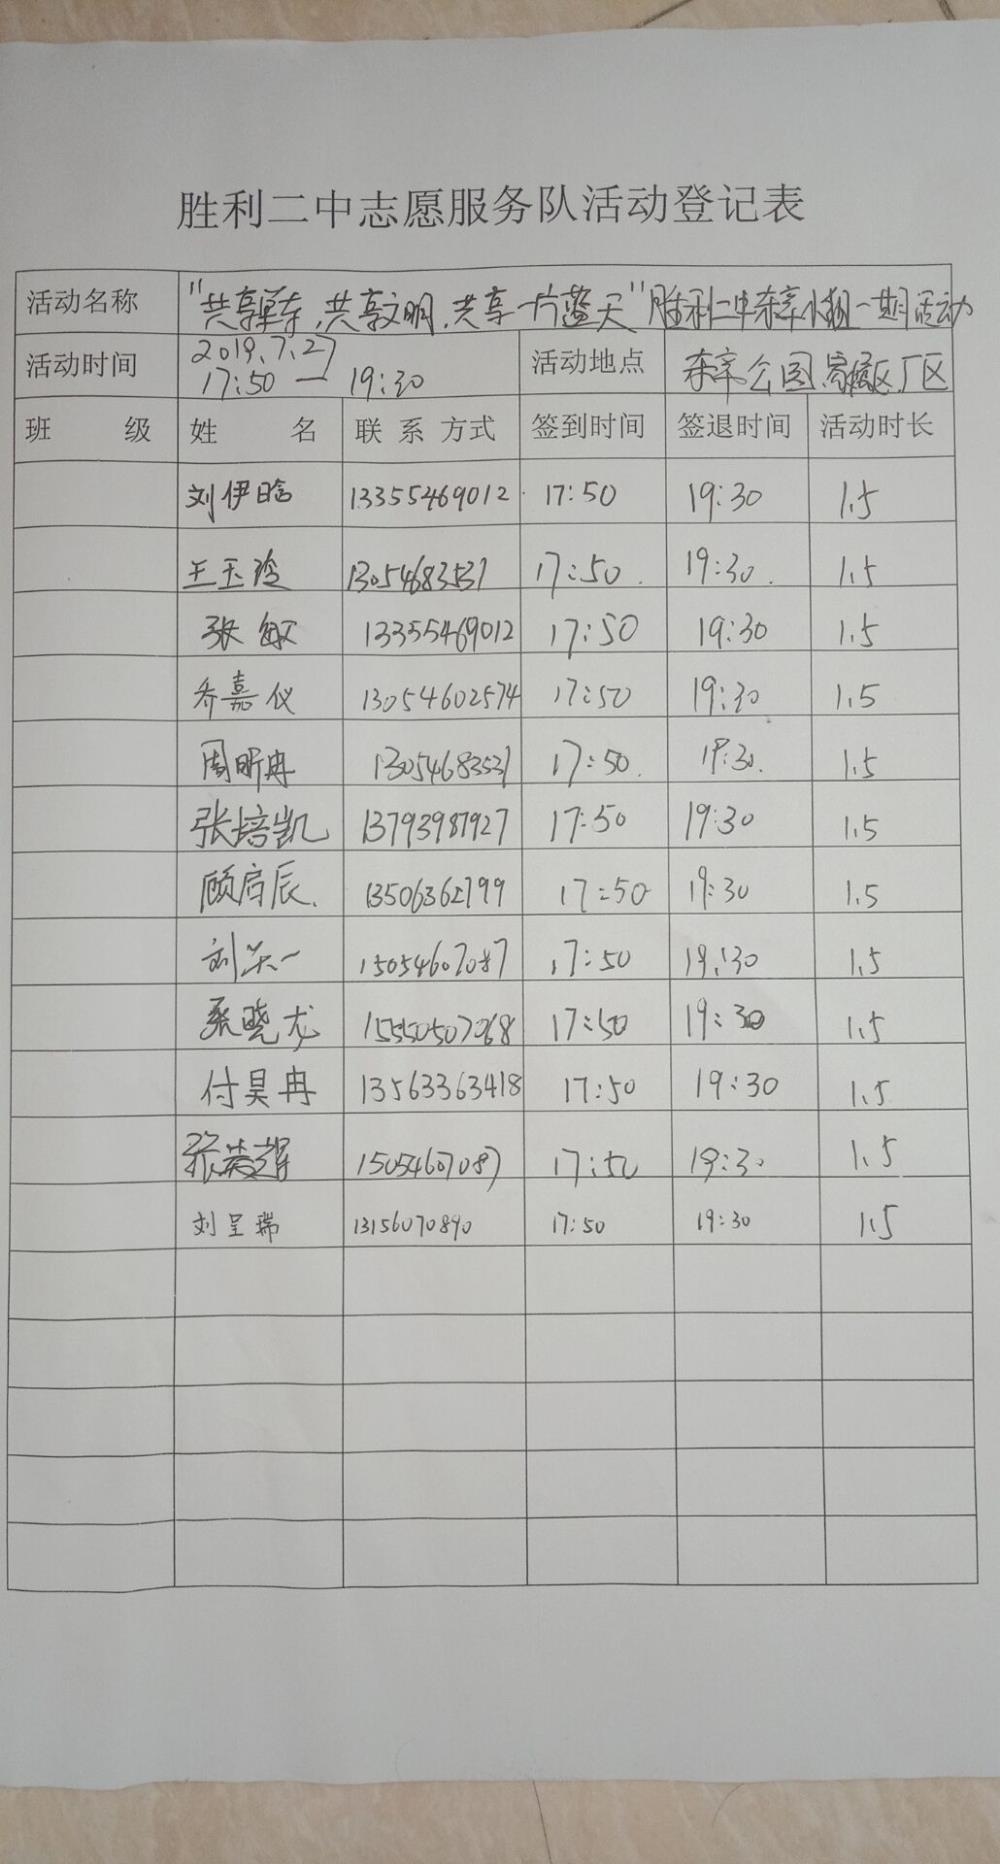 胜利二中志愿服务队活动登记表
活动名称 "共享单车、共享文明、共享一片蓝天"胜利二中东辛小组一期活动
活动时间 2019.7.27 17:50 — 19:30 活动地点 东辛公园 厂区
班 级 姓 名 联系方式 签到时间 签退时间 活动时长
刘伊晗 13355469012 17:50 19:30 1.5
王玉玲 13054683531 17:50 19:30 1.5
张敏 13355469012 17:50 19:30 1.5
乔嘉仪 13054602574 17:50 19:30 1.5
周昕冉 13054683531 17:50 19:30 1.5
张培凯 13793987927 17:50 19:30 1.5
顾启辰 13506362799 17:50 19:30 1.5
刘一 15054607087 17:50 19:30 1.5
晓龙 15550507068 17:50 19:30 1.5
付昊冉 13563363418 17:50 19:30 1.5
张 15054607087 17:50 19:30 1.5
刘呈瑞 13156070890 17:50 19:30 1.5